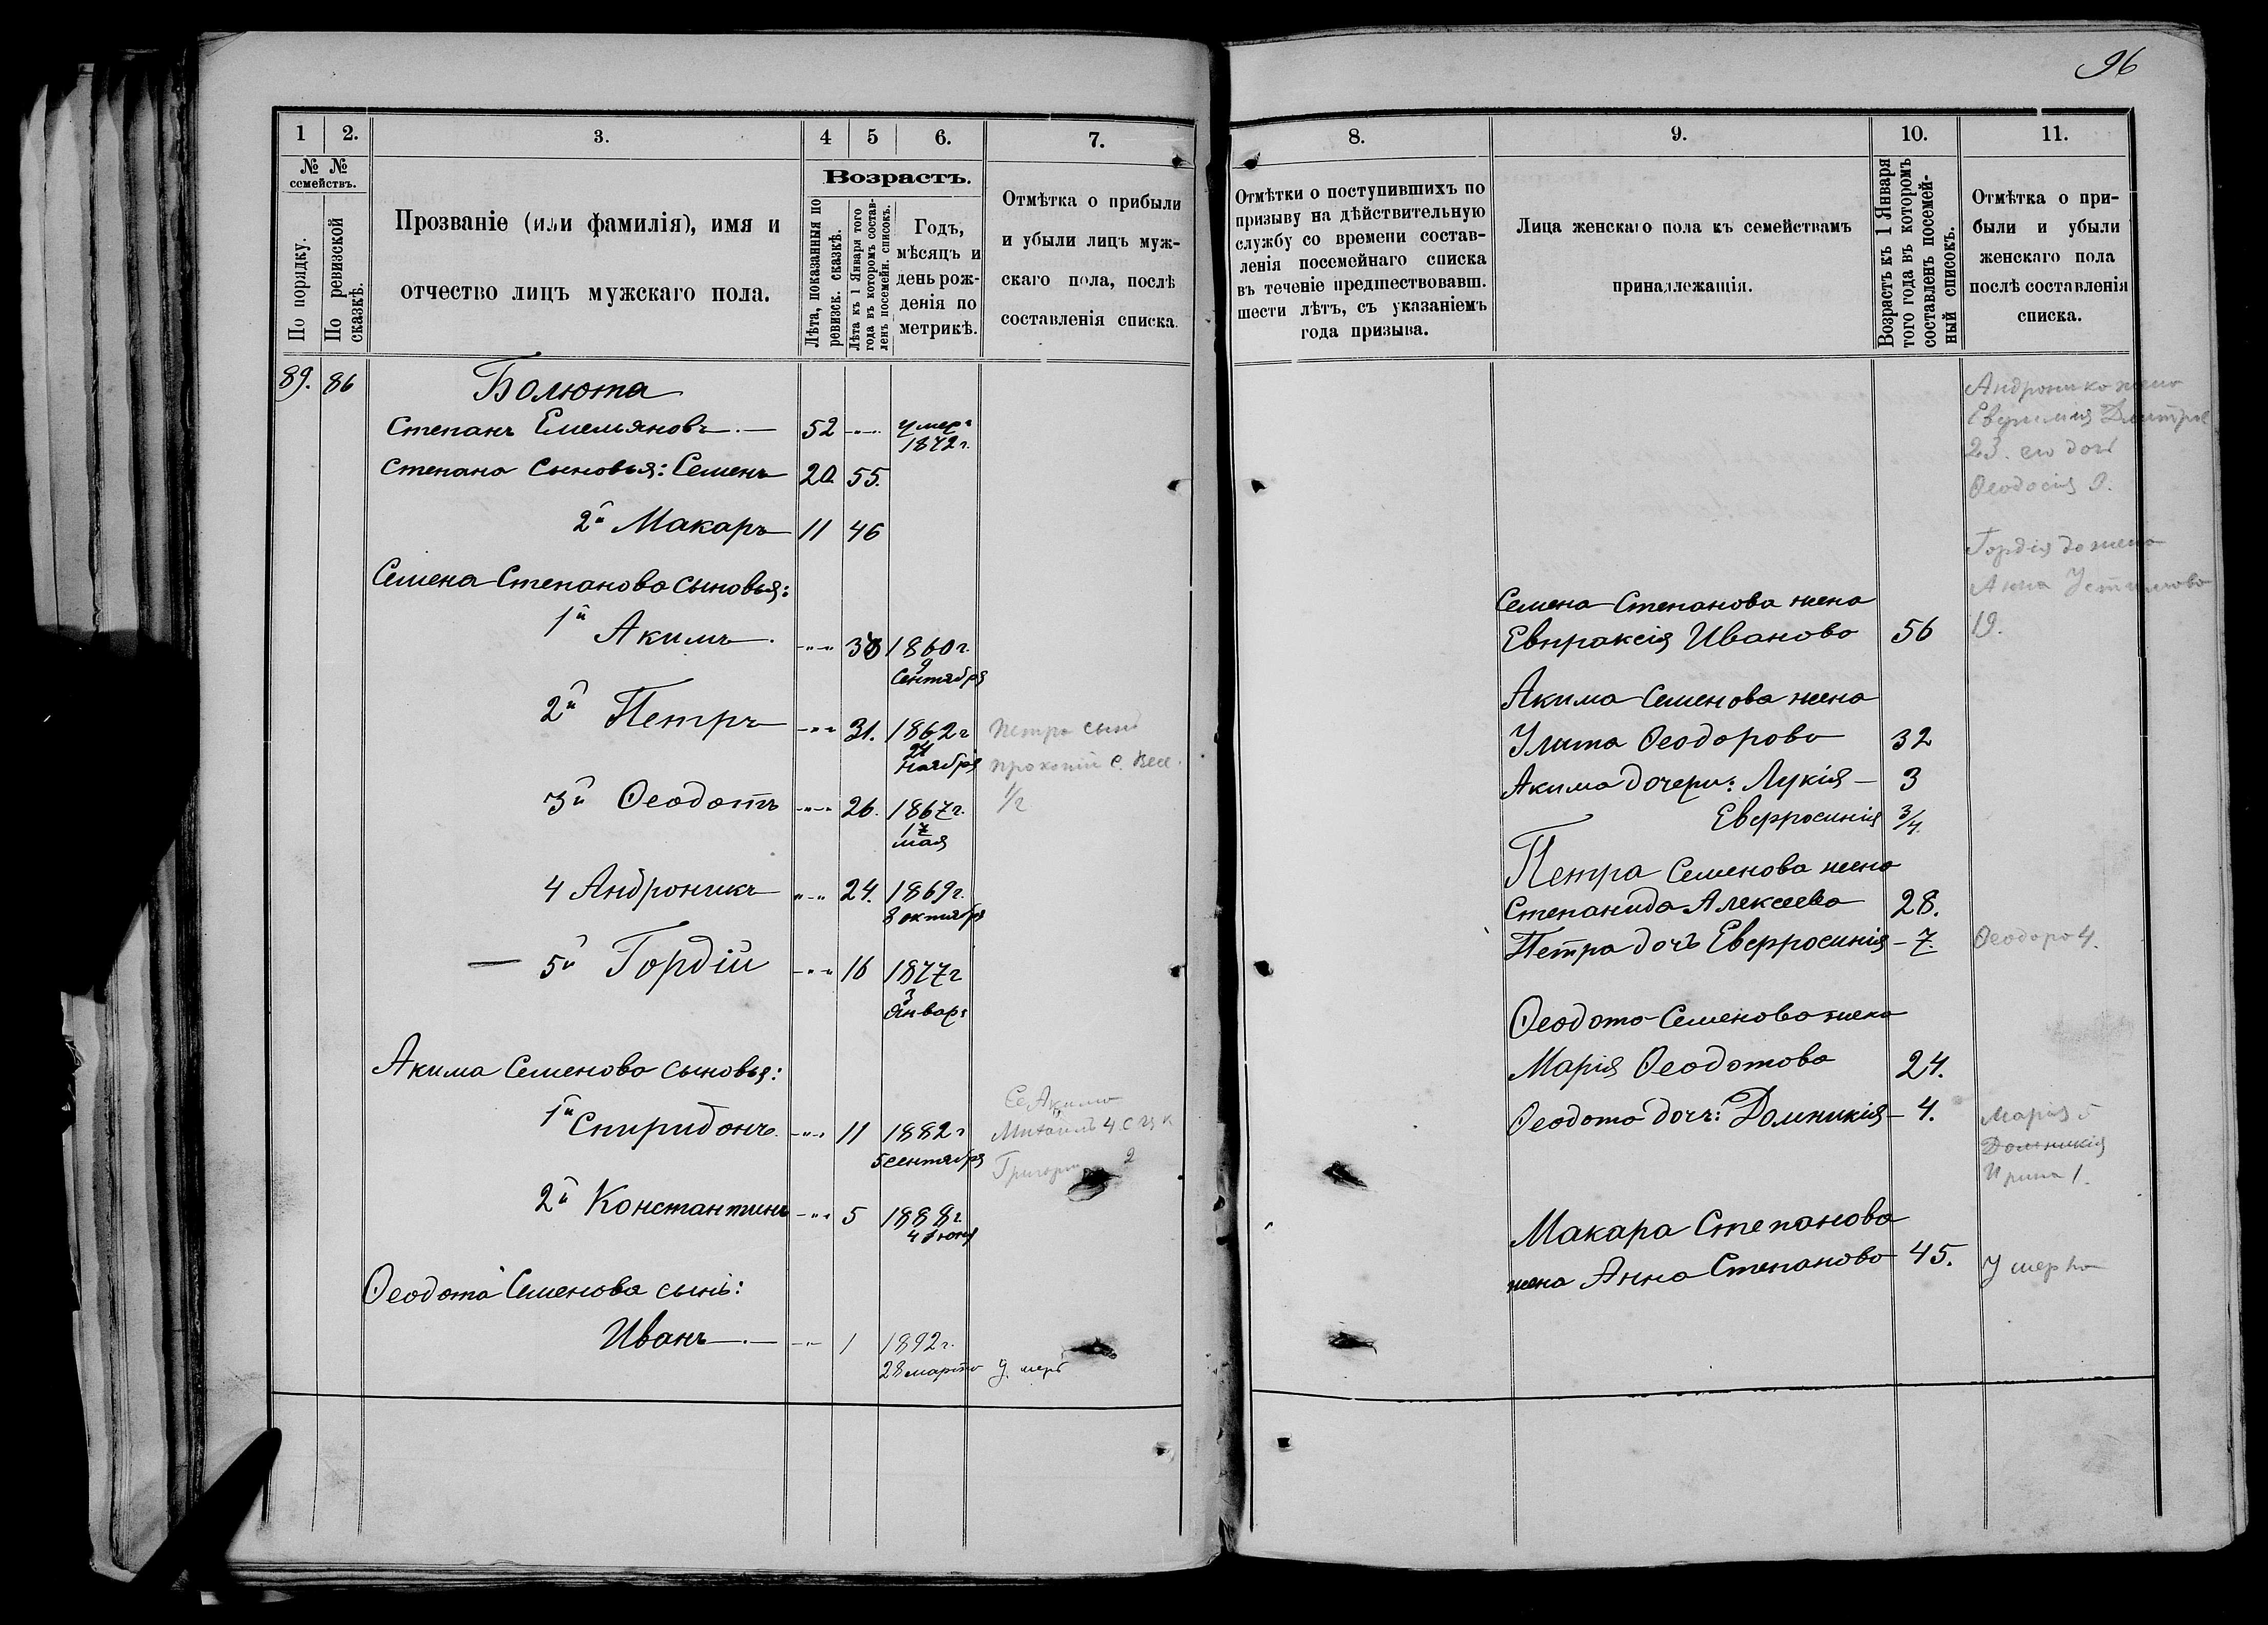 96
1 2. 3. 4 5 6. 7.
№ № семействъ.
По порядку.
По ревизской сказкѣ.
Прозваніе (или фамилія), имя и
отчество лицъ мужскаго пола.
Возрастъ.
Лѣта, показанныя по ревизск. сказкѣ.
Лѣта къ 1 Января того года въ которомъ составленъ посемейн. списокъ.
Годъ,
мѣсяцъ и
день рож-
денія по
метрикѣ.
Отмѣтка о прибыли
и убыли лицъ муж-
скаго пола, послѣ
составленія списка.
89. 86 Болюта
Степанъ Емельяновъ 52 умеръ
1872 г.
Степана Сыновья: Семенъ 20 55.
2й Макаръ 11 46
Семена Степанова сыновья:
1й Акимъ. 33 1860 г.
9
Сентября
2й Петръ 31. 1862 г
Ноября
Петра сынъ
Прокопій
1/2
3й Ѳеодотъ 26. 1867 г.
17
мая
4 Андроникъ 24. 1869 г.
8 октября
5й Гордій 16 1877 г
3
Январ.
Акима Семенова сыновья:
Акима
1й Спиридонъ. 11 1882 г
5 сентября
Михаилъ 4
Григорій 2
2й Константинъ 5 1888 г.
4 Іюня
Ѳеодота Семенова сынъ:
Иванъ 1 1892 г.
28 марта умеръ
8. 9. 10. 11.
Отмѣтки о поступившихъ по
призыву на дѣйствительную
службу со времени состав-
ленія посемейнаго списка
въ теченіе предшествовавш.
шести лѣтъ, съ указаніемъ
года призыва.
Лица женскаго пола къ семействамъ
принадлежащія.
Возрастъ къ 1 Января
того года въ которомъ
составленъ посемей-
ный списокъ.
Отмѣтка о при-
были и убыли
женскаго пола
послѣ составленія
списка.
Андроника жена
Евфимія Дмитров
23. его дочь
Ѳеодосія
Гордія жена
Анна Устимова
19.
Семена Степанова жена
Евпраксія Иванова 56
Акима Семенова жена
Улита Ѳеодорова 32
Акима дочери: Лукія 3
Евфросинія 3/4
Петра Семенова жена
Степанида Алексеева 28.
Петра дочь Евфросинія 7. Ѳеодора 4.
Ѳеодота Семенова жена
Марія Ѳеодотова 24.
Ѳеодота дочь: Домникія 4.
Марія 5
Домникія
Ирина 1.
Макара Степанова
жена Анна Степанова 45. Умерла